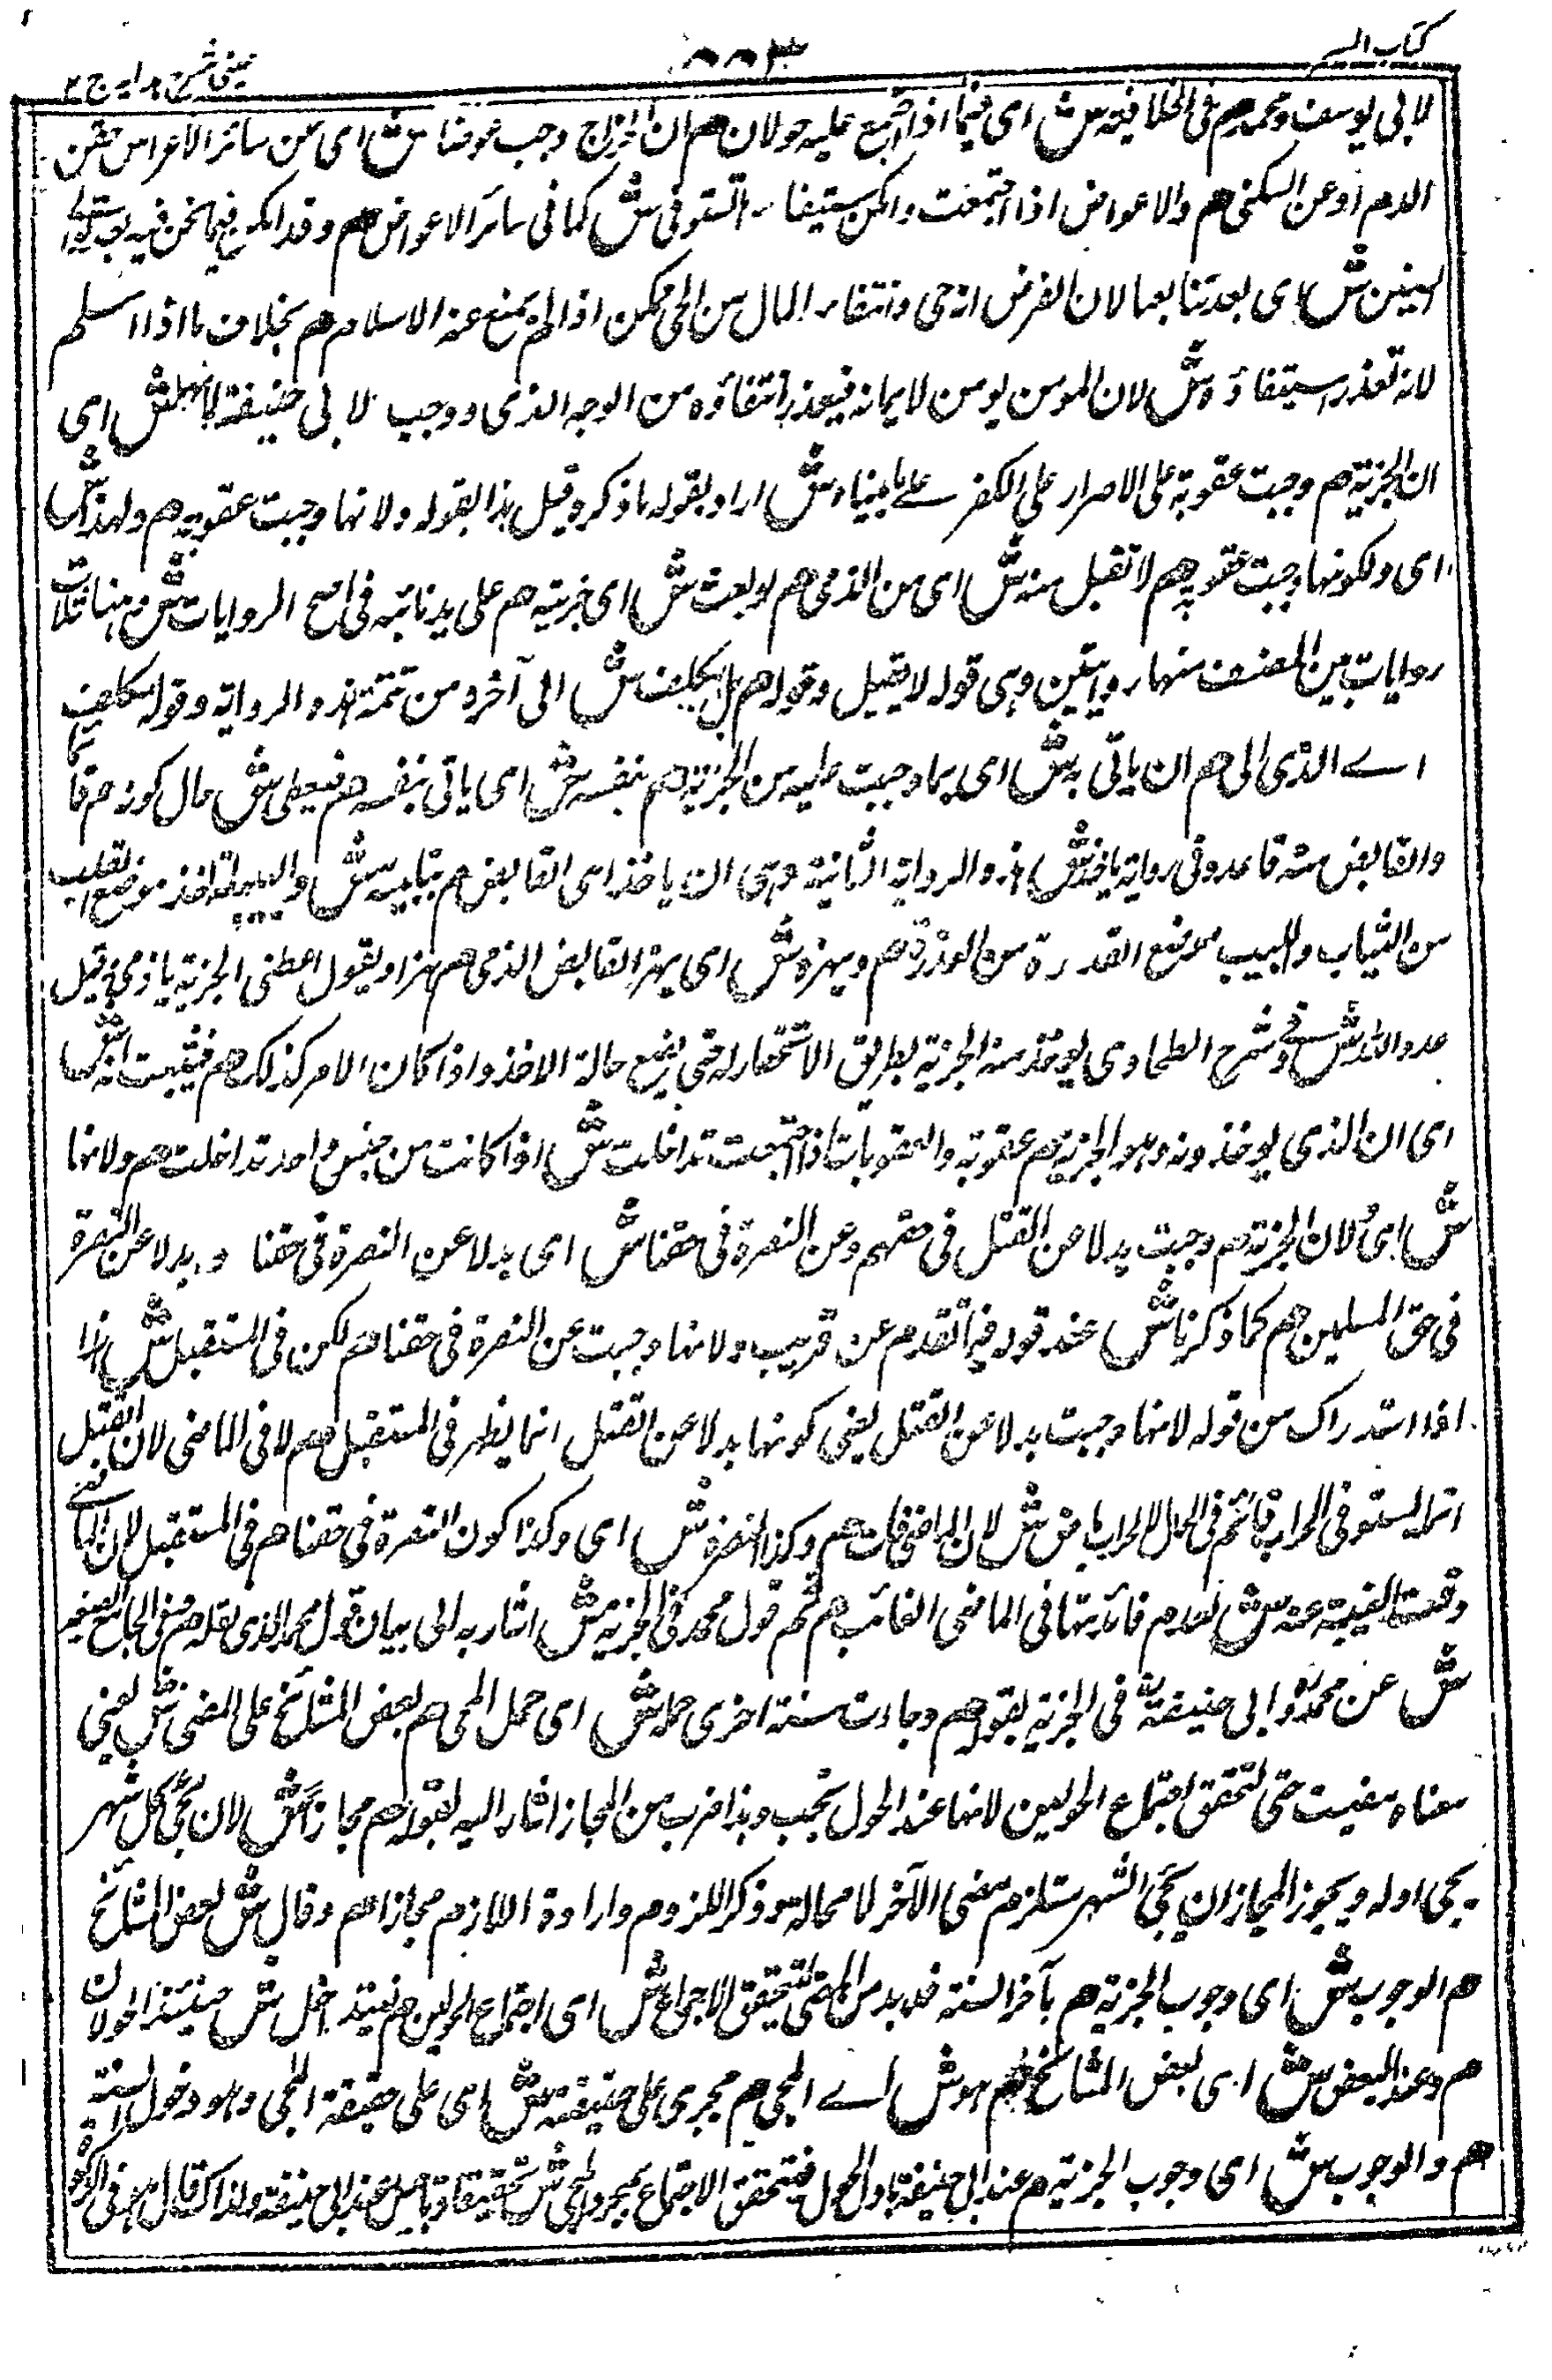 كتاب السير
عينى شرح هدايه ج ٢
لابى يوسف ومحمد رح فى الخلافية ش اى فيما اذا اجتمع عليه حولان هم ان الخراج وجب عوضا ش اى عن سائر الاعراض حقن
الدم او عن السكنى هم والاعواض اذا اجتمعت وامكن استيفاء ها تستوفى ش كما فى سائر الاعواض هم وقد امكن فيما نحن فيه بعد توالى
السنين ش اى بعد تتابعها لان الفرض انه حى واستيفاء المال من الحى ممكن اذا لم يمنع عنه الاسلام هم بخلاف ما اذا اسلم
لانه تعذر استيفاؤه ش لان المؤمن يوقر لايمانه فيتعذر استيفاؤه من الوجه الذى ووجب لابى حنيفة انها ش اى
ان الجزية هم وجبت عقوبة على الاصرار على الكفر على ما بيناه ش اراد بقوله ما ذكره قبل هذا بقوله ولانها وجبت عقوبة هم ولهذا ش
اى ولكونها وجبت عقوبة هم لا تقبل منه ش اى من الذمى هم لو بعث ش اى جزيته هم على يد نائبه فى اصح الروايات ش وهنا ثلاث
روايات بين المصنف منها روايتين وهى قوله لا يقبل وقوله هم بل يكلف ش الى آخره من تتمة هذه الرواية وقوله يكلف
اے الذمى الى هم ان ياتى به ش اى بما وجبت عليه من الجزية هم بنفسه ش اى ياتى بنفسه هم فيعطى ش حال كونه هم قائما
والقابض منه قاعد وفى رواية ياخذ ش هذه الرواية الثانية وهى ان ياخذ اى القابض هم بتلبيبه ش والتلبيب اخذ موضع اللبب
من الثياب واللبب موضع القلادة من الصدر هم ويهزه ش اى يهز القابض الذمى هم هزا ويقول اعطنى الجزية يا ذمى وقيل
عدو الله ش وفى شرح الطحاوى يؤخذ منه الجزية بطريق الاستحقار له حتى يصفع حالة الاخذ واذا كان الامر كذلك هم فيثبت انه ش
اى ان الذى يؤخذ منه وهو الجزية هم عقوبة والعقوبات اذا اجتمعت تداخلت ش اذا كانت من جنس واحد تداخلت هم ولانها
ش اى لان الجزية هم وجبت بدلا عن القتل فى حقهم وعن النصرة فى حقنا ش اى بدلا عن النصرة فى حقنا وبدلا عن النصرة
فى حق المسلمين هم كما ذكرنا ش عند قوله فيما تقدم عن قريب ولانها وجبت عن النصرة فى حقنا هم لكن فى المستقبل ش هذا
اذا استدراك من قوله لانها وجبت بدلا عن القتل يعنى كونها بدلا عن القتل انما يظهر فى المستقبل هم لا فى الماضى لان القتل
انما يستوفى لحراب قائم فى الحال لا لحراب ماض ش لان الماضى فات هم وكذا النصرة ش اى وكذا كون النصرة فى حقنا هم فى المستقبل لان الماضى
وقعت الغنية عنه ش لعدم فائدتها فى الماضى الفائت هم ثم قول محمد فى الجزية ش اشار به الى بيان قول محمد الذى نقله هم فى الجامع الصغير
ش عن محمد وابى حنيفة فى الجزية بقوله هم وجاءت سنة اخرى حمله ش اى حمل المجى هم بعض المشائخ على المضى ش يعنى
معناه مضيت حتى تتحقق اجتماع الحولين لانها عند الحول تجب وهذا ضرب من المجاز اشار اليه بقوله هم مجازا ش لان مجى كل شهر
يجى اوله ويجوز المجاز ان مجى الشهر يستلزم مضى الآخر لا محالة هو ذكر الملزوم وارادة اللازم مجازا هم وقال ش بعض المشائخ
هم الوجوب ش اى وجوب الجزية هم بآخر السنة فلا بد من المضى ليتحقق الاجتماع ش اى اجتماع الحولين هم فيتداخل ش حينئذ الحولان
هم وعند البعض ش اى بعض المشائخ هم هو ش اے المجى هم مجرى على حقيقته ش اى على حقيقة المجى وهو دخول السنة
هم والوجوب ش اى وجوب الجزية هم عند ابى حنيفة باول الحول فيتحقق الاجتماع بمجرد المجى ش